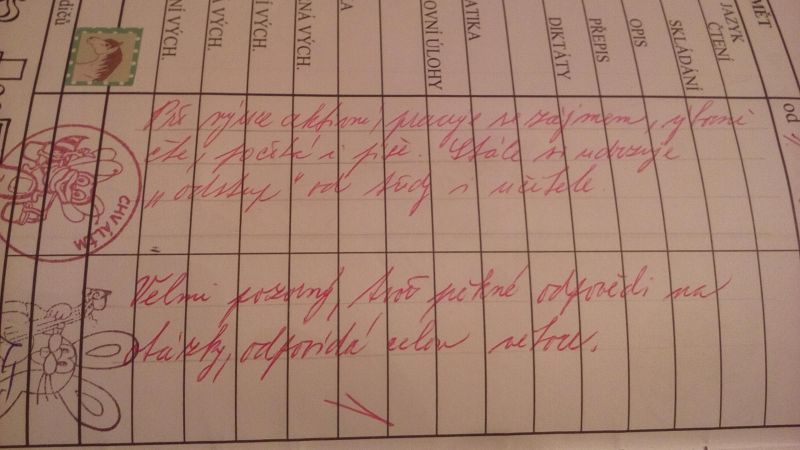 MĚT
JAZYK
ČTENÍ
SKLÁDÁNÍ
OPIS
PŘEPIS
DIKTÁTY
ATIKA
OVNÍ ÚLOHY
LA
NÁ VÝCH.
Í VÝCH.
VÁ VÝCH.
NÍ VÝCH.
dičů
od
Při výuce aktivní, pracuje se zájmem, výborně
čte, počítá i píše. Stále si udržuje
„odstup“ od třídy i učitele.
CHVÁLÍM
Velmi pozorný, tvoří pěkné odpovědi na
otázky, odpovídá celou větou.